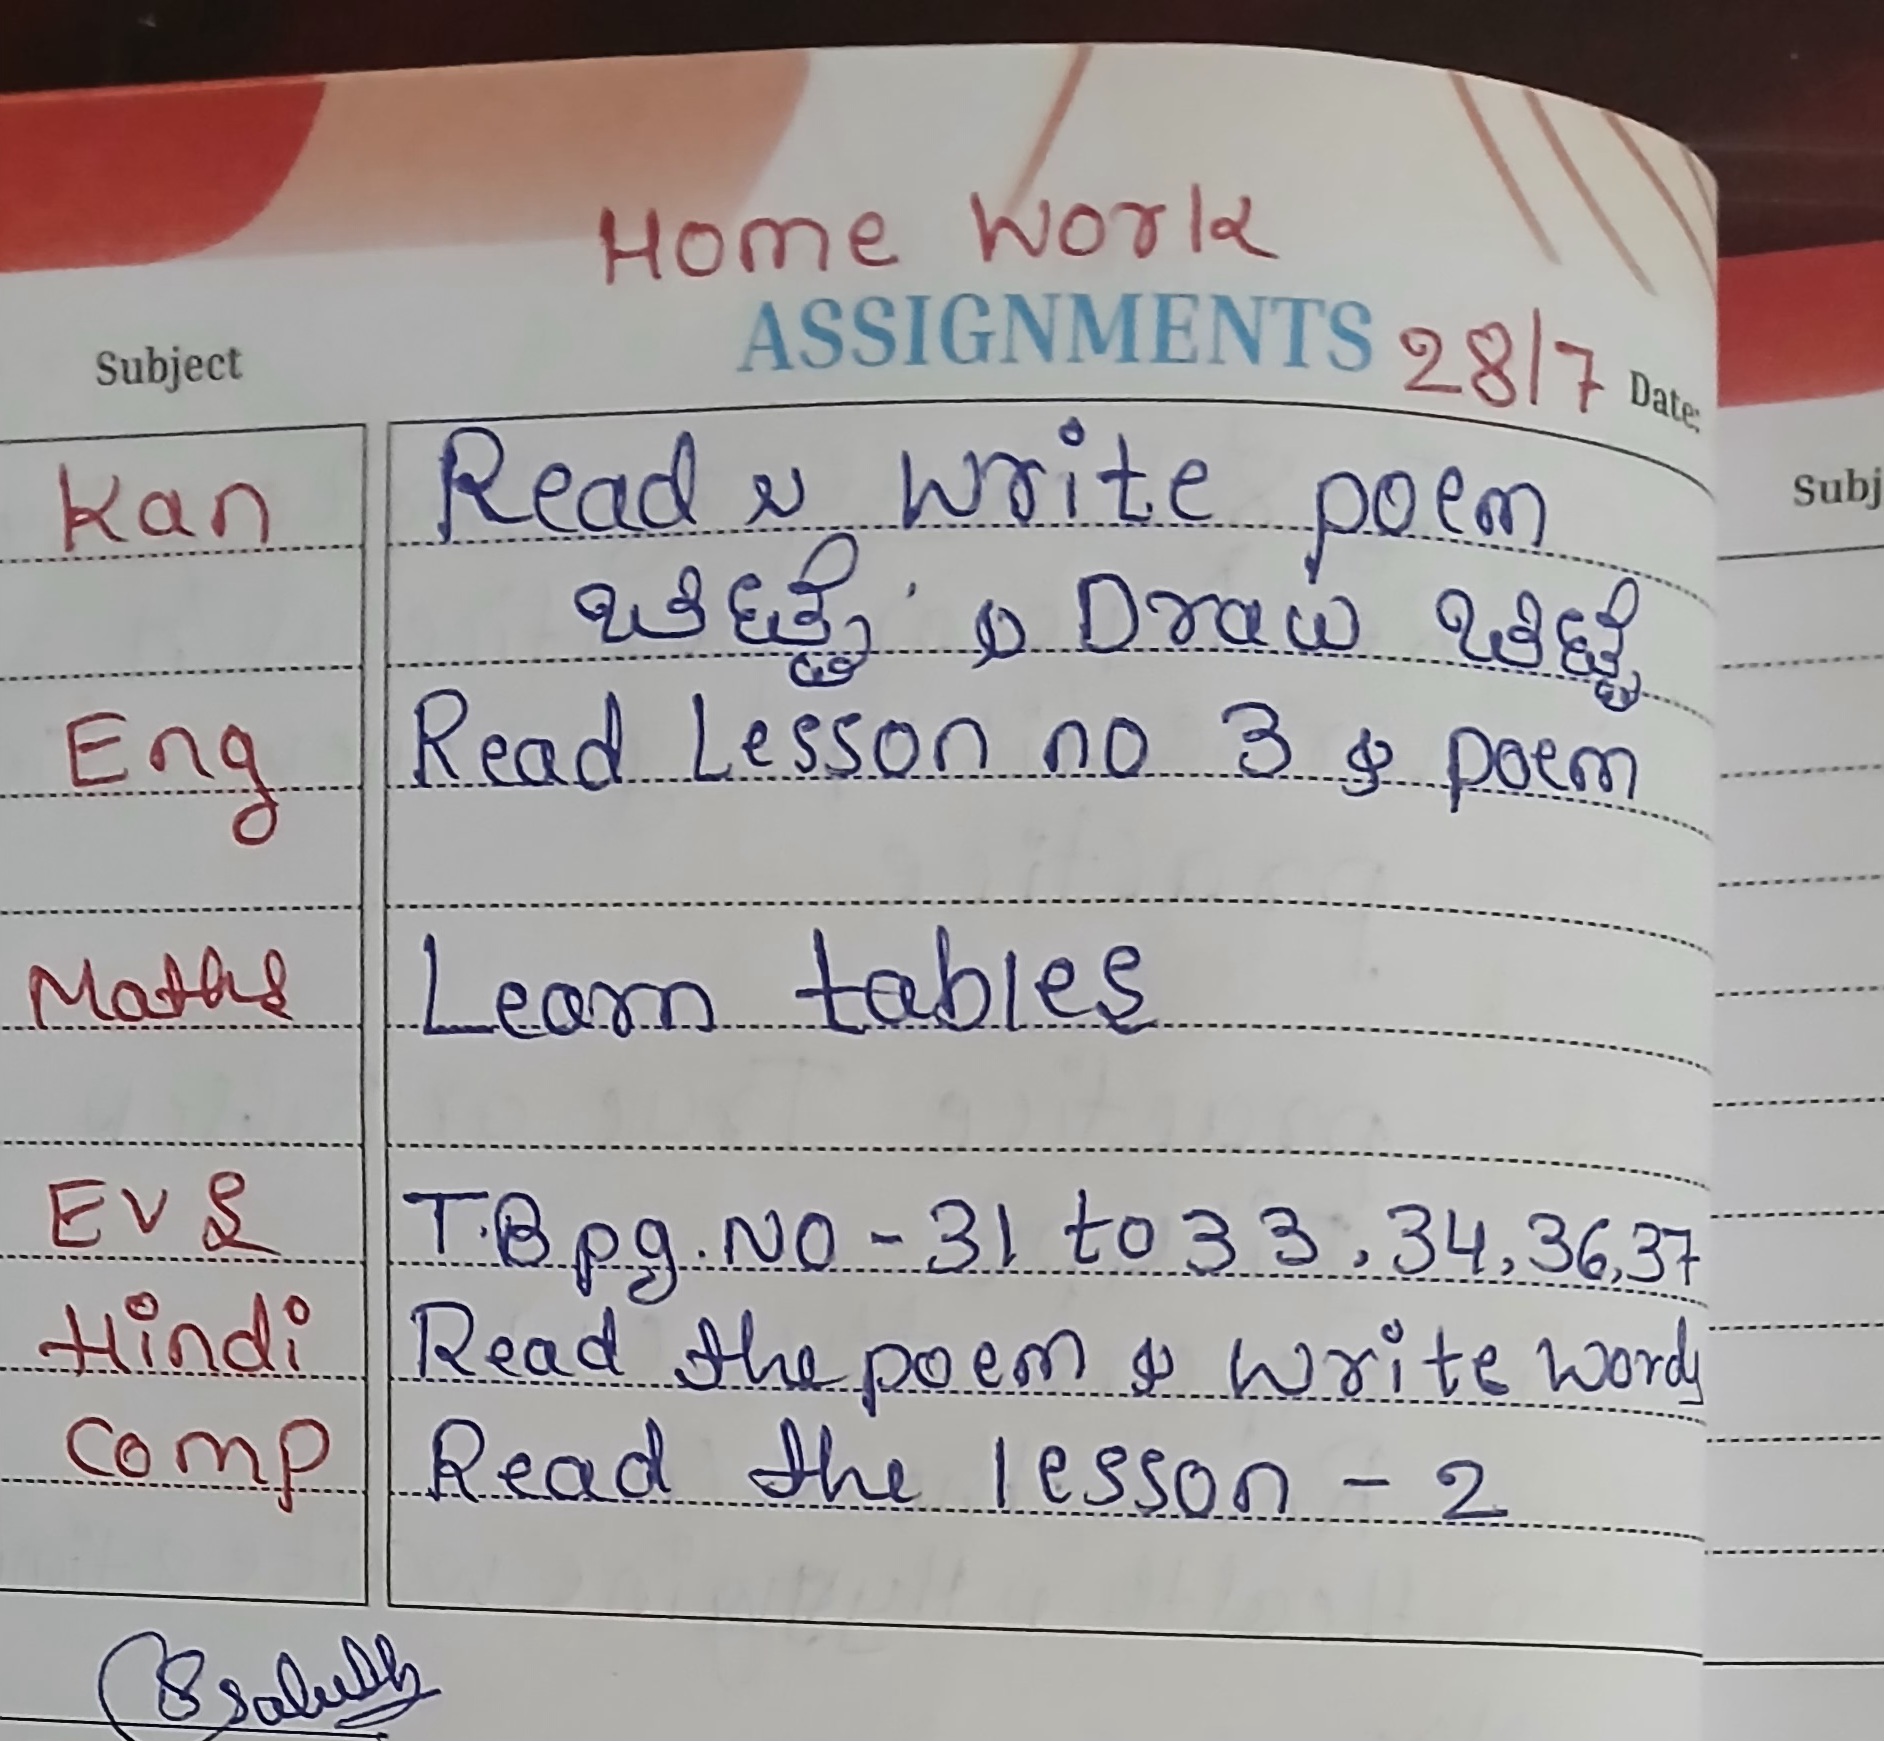 Home Work
ASSIGNMENTS 28/7 Date:
Subject
Subj
Kan Read & Write poem
& Draw
Eng Read Lesson no 3 & poem
Maths Learn tables
EVS T.B pg. NO - 31 to 33, 34, 36, 37
Hindi Read the poem & write words
Comp Read the lesson - 2